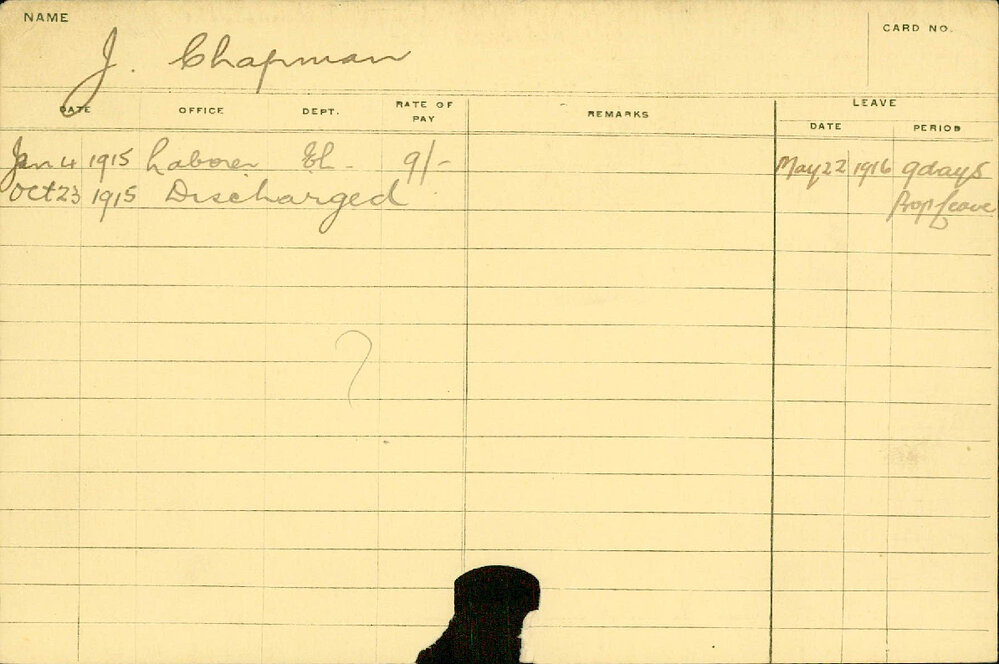 NAME
CARD NO.
J. Chapman
DATE OFFICE DEPT. RATE OF PAY REMARKS LEAVE
DATE PERIOD
Jan 4 1915 Laborer El. 9/- May 22 1916 9 days
Oct 23 1915 Discharged Prop leave
?